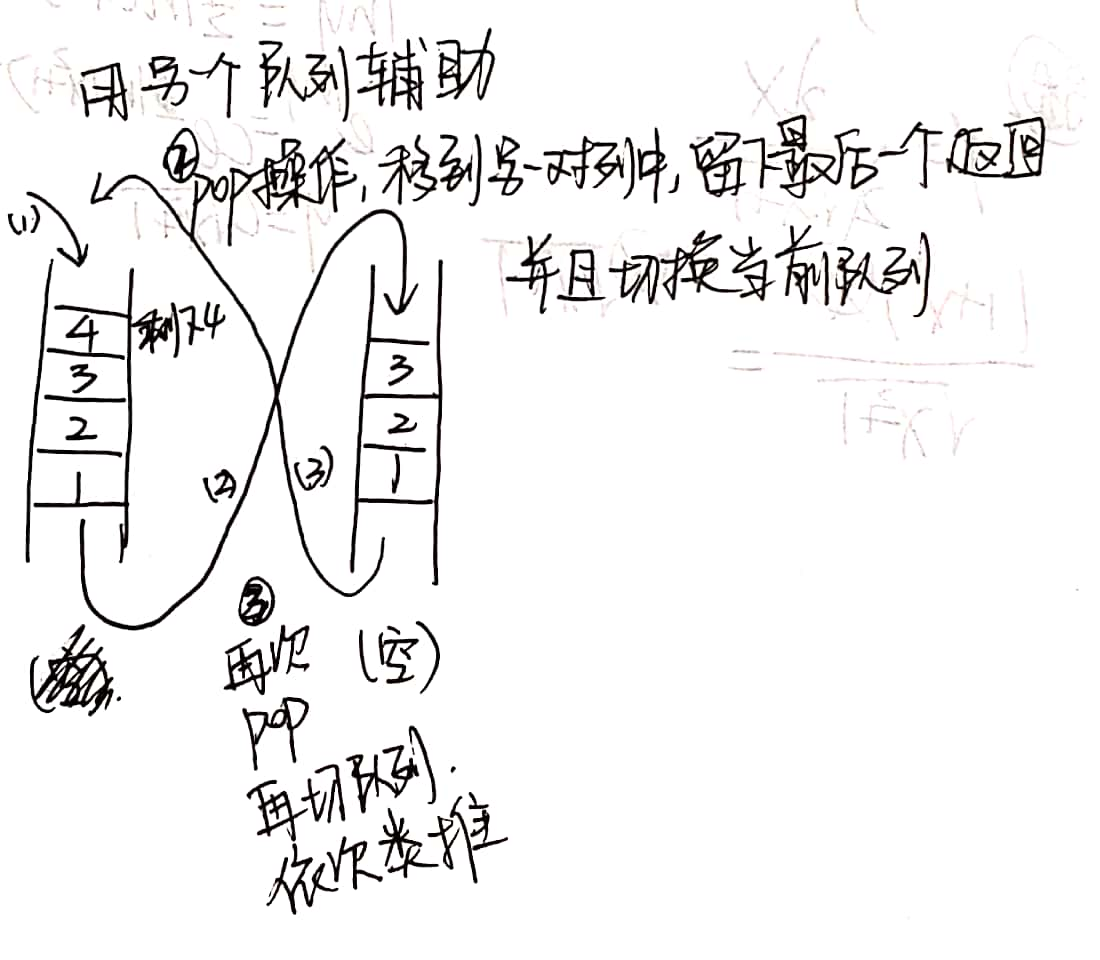 用另一个队列辅助
② pop操作,移到另一对列中,留下最后一个返回
并且切换当前队列
(1)
4 剩下4
3
2
1
3
2
1
(2)
(3)
③
再次
pop
再切队列.
依次类推
(空)